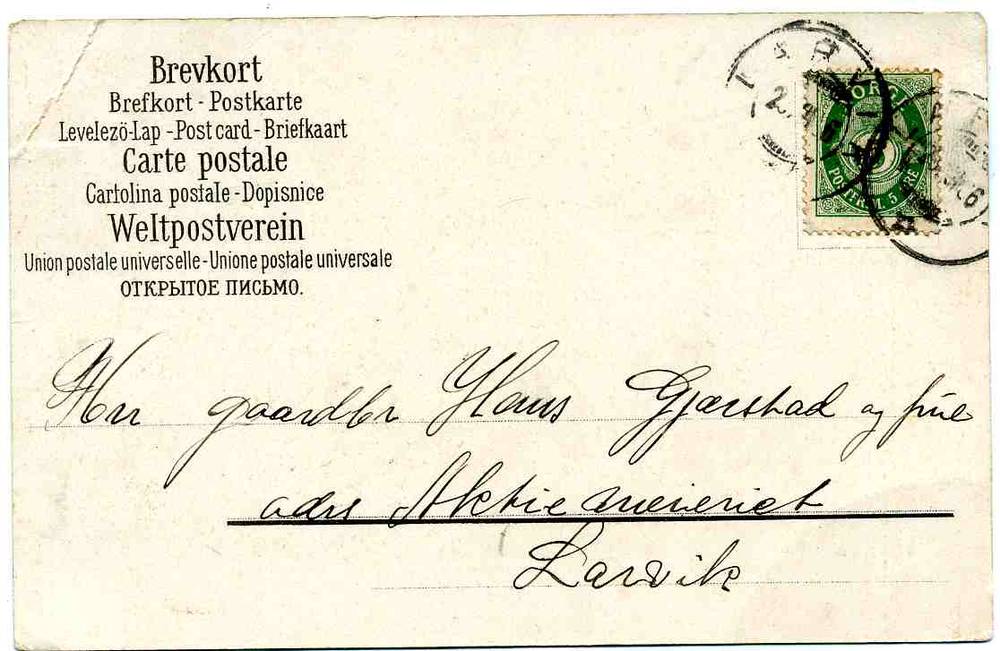 Brevkort
Brefkort - Postkarte
Levelezö-Lap - Post card - Briefkaart
Carte postale
Cartolina postale - Dopisnice
Weltpostverein
Union postale universelle - Unione postale universale
ОТКРЫТОЕ ПИСЬМО.
NORGE
POSTFRIM. 5 ØRE
Herr gaardbr Hans Gjærstad og frue
adrs Aktiemeieriet
Larvik